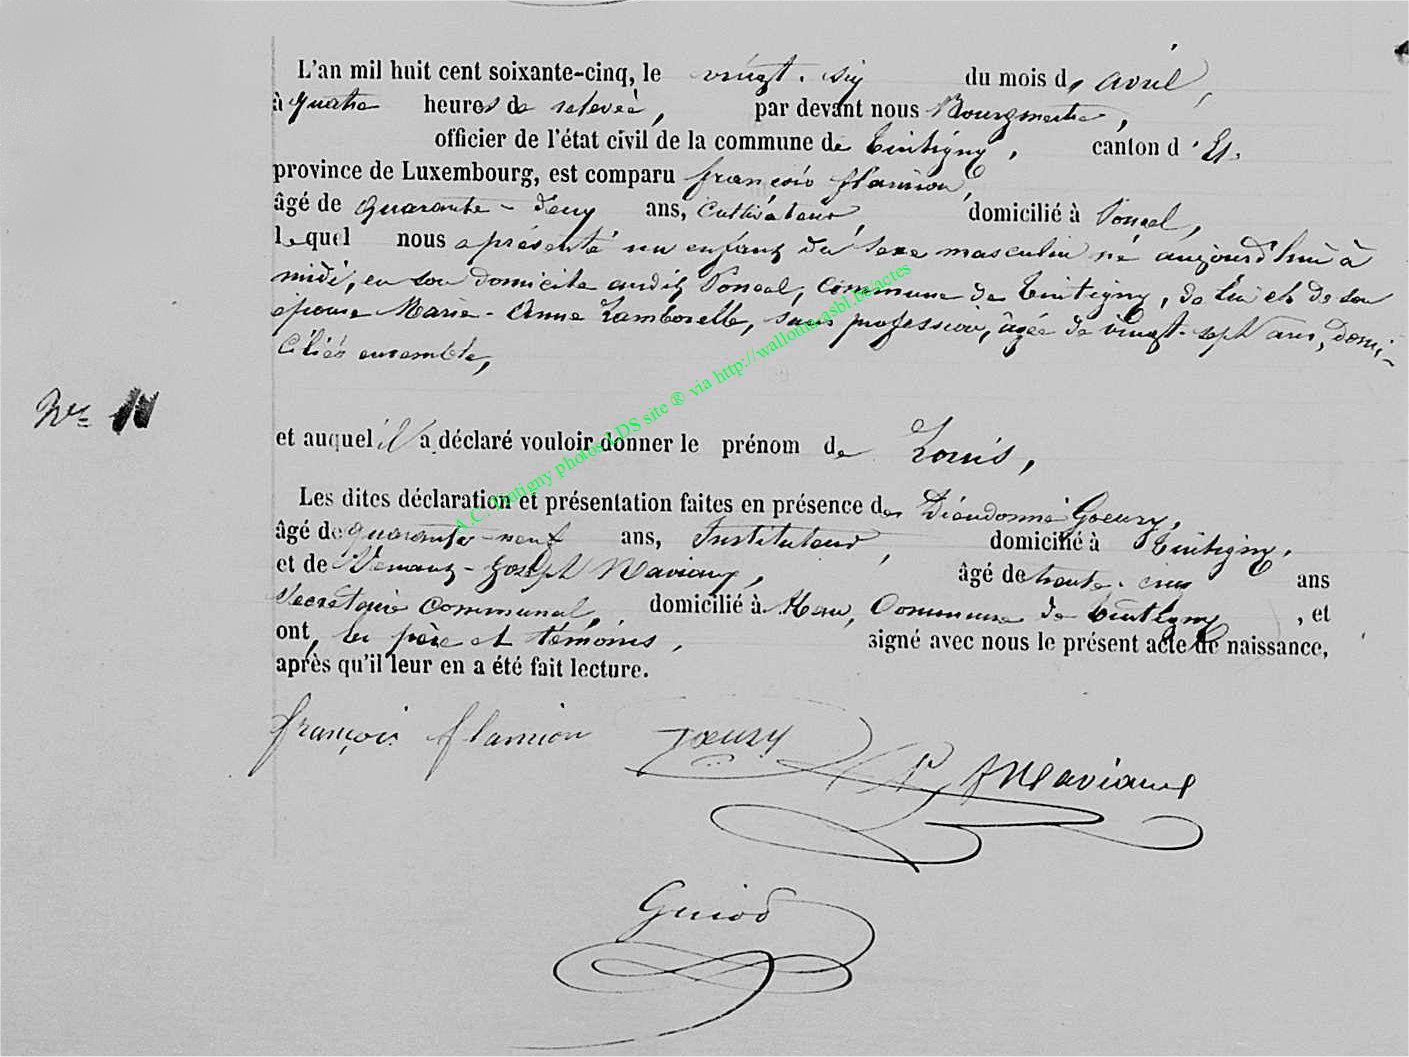 L'an mil huit cent soixante-cinq, le vingt-six du mois d'avril,
à quatre heures de relevée, par devant nous Bourgmestre,
officier de l'état civil de la commune de Tintigny, canton d'Et.
province de Luxembourg, est comparu françois flamion,
âgé de quarante-deux ans, cultivateur, domicilié à Poncel,
lequel nous a présenté un enfant du sexe masculin né aujourd'hui à
midi, en son domicile audit Poncel, commune de Tintigny, de lui et de son
épouse Marie-Anne Lamborelle, sans profession, âgée de vingt-sept ans, domi-
ciliés ensemble,
et auquel il a déclaré vouloir donner le prénom de Louis,
Les dites déclaration et présentation faites en présence de Dieudonné Goeury,
âgé de quarante-neuf ans, Instituteur, domicilié à Tintigny,
et de Joseph Maviaux, âgé de trente-cinq ans
Secrétaire communal, domicilié à Han, Commune de Tintigny, et
ont, les père et témoins, signé avec nous le présent acte de naissance,
après qu'il leur en a été fait lecture.
françois flamion Goeury Maviaux
Guiod
A.C. Tintigny photos LDS site ® via http://wallonia-asbl.be/actes